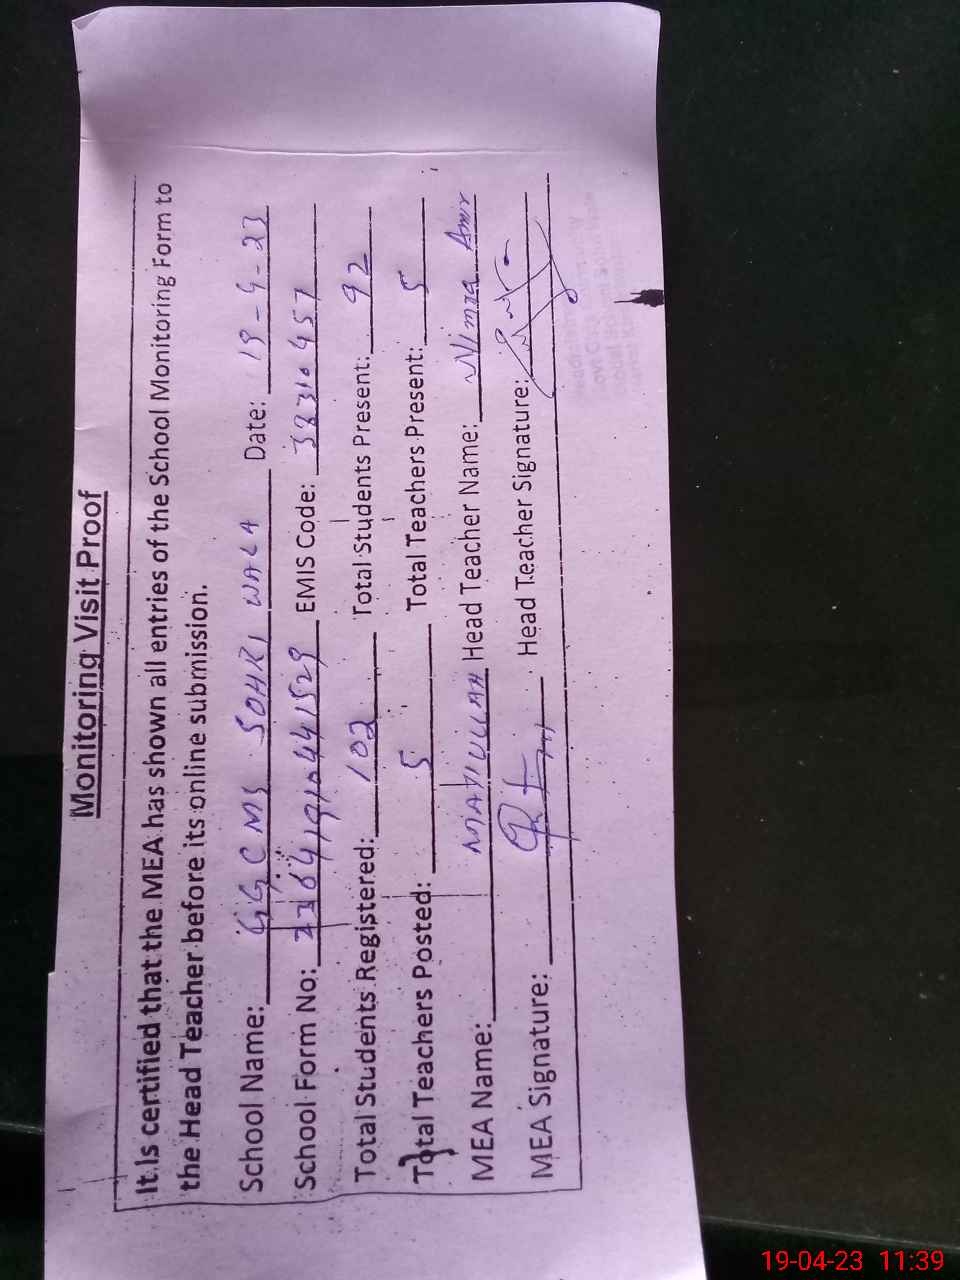 Monitoring Visit Proof
It Is certified that the MEA has shown all entries of the School Monitoring Form to
the Head Teacher before its online submission.
School Name: GGCMS SOHRI WALA Date: 19-4-23
School Form No: EMIS Code: 38310457
Total Students Registered: 102 Total Students Present: 92
Total Teachers Posted: 5 Total Teachers Present: 5
MEA Name: MATIULLAH Head Teacher Name: Nimra Amir
MEA Signature: Head Teacher Signature:
19-04-23 11:39